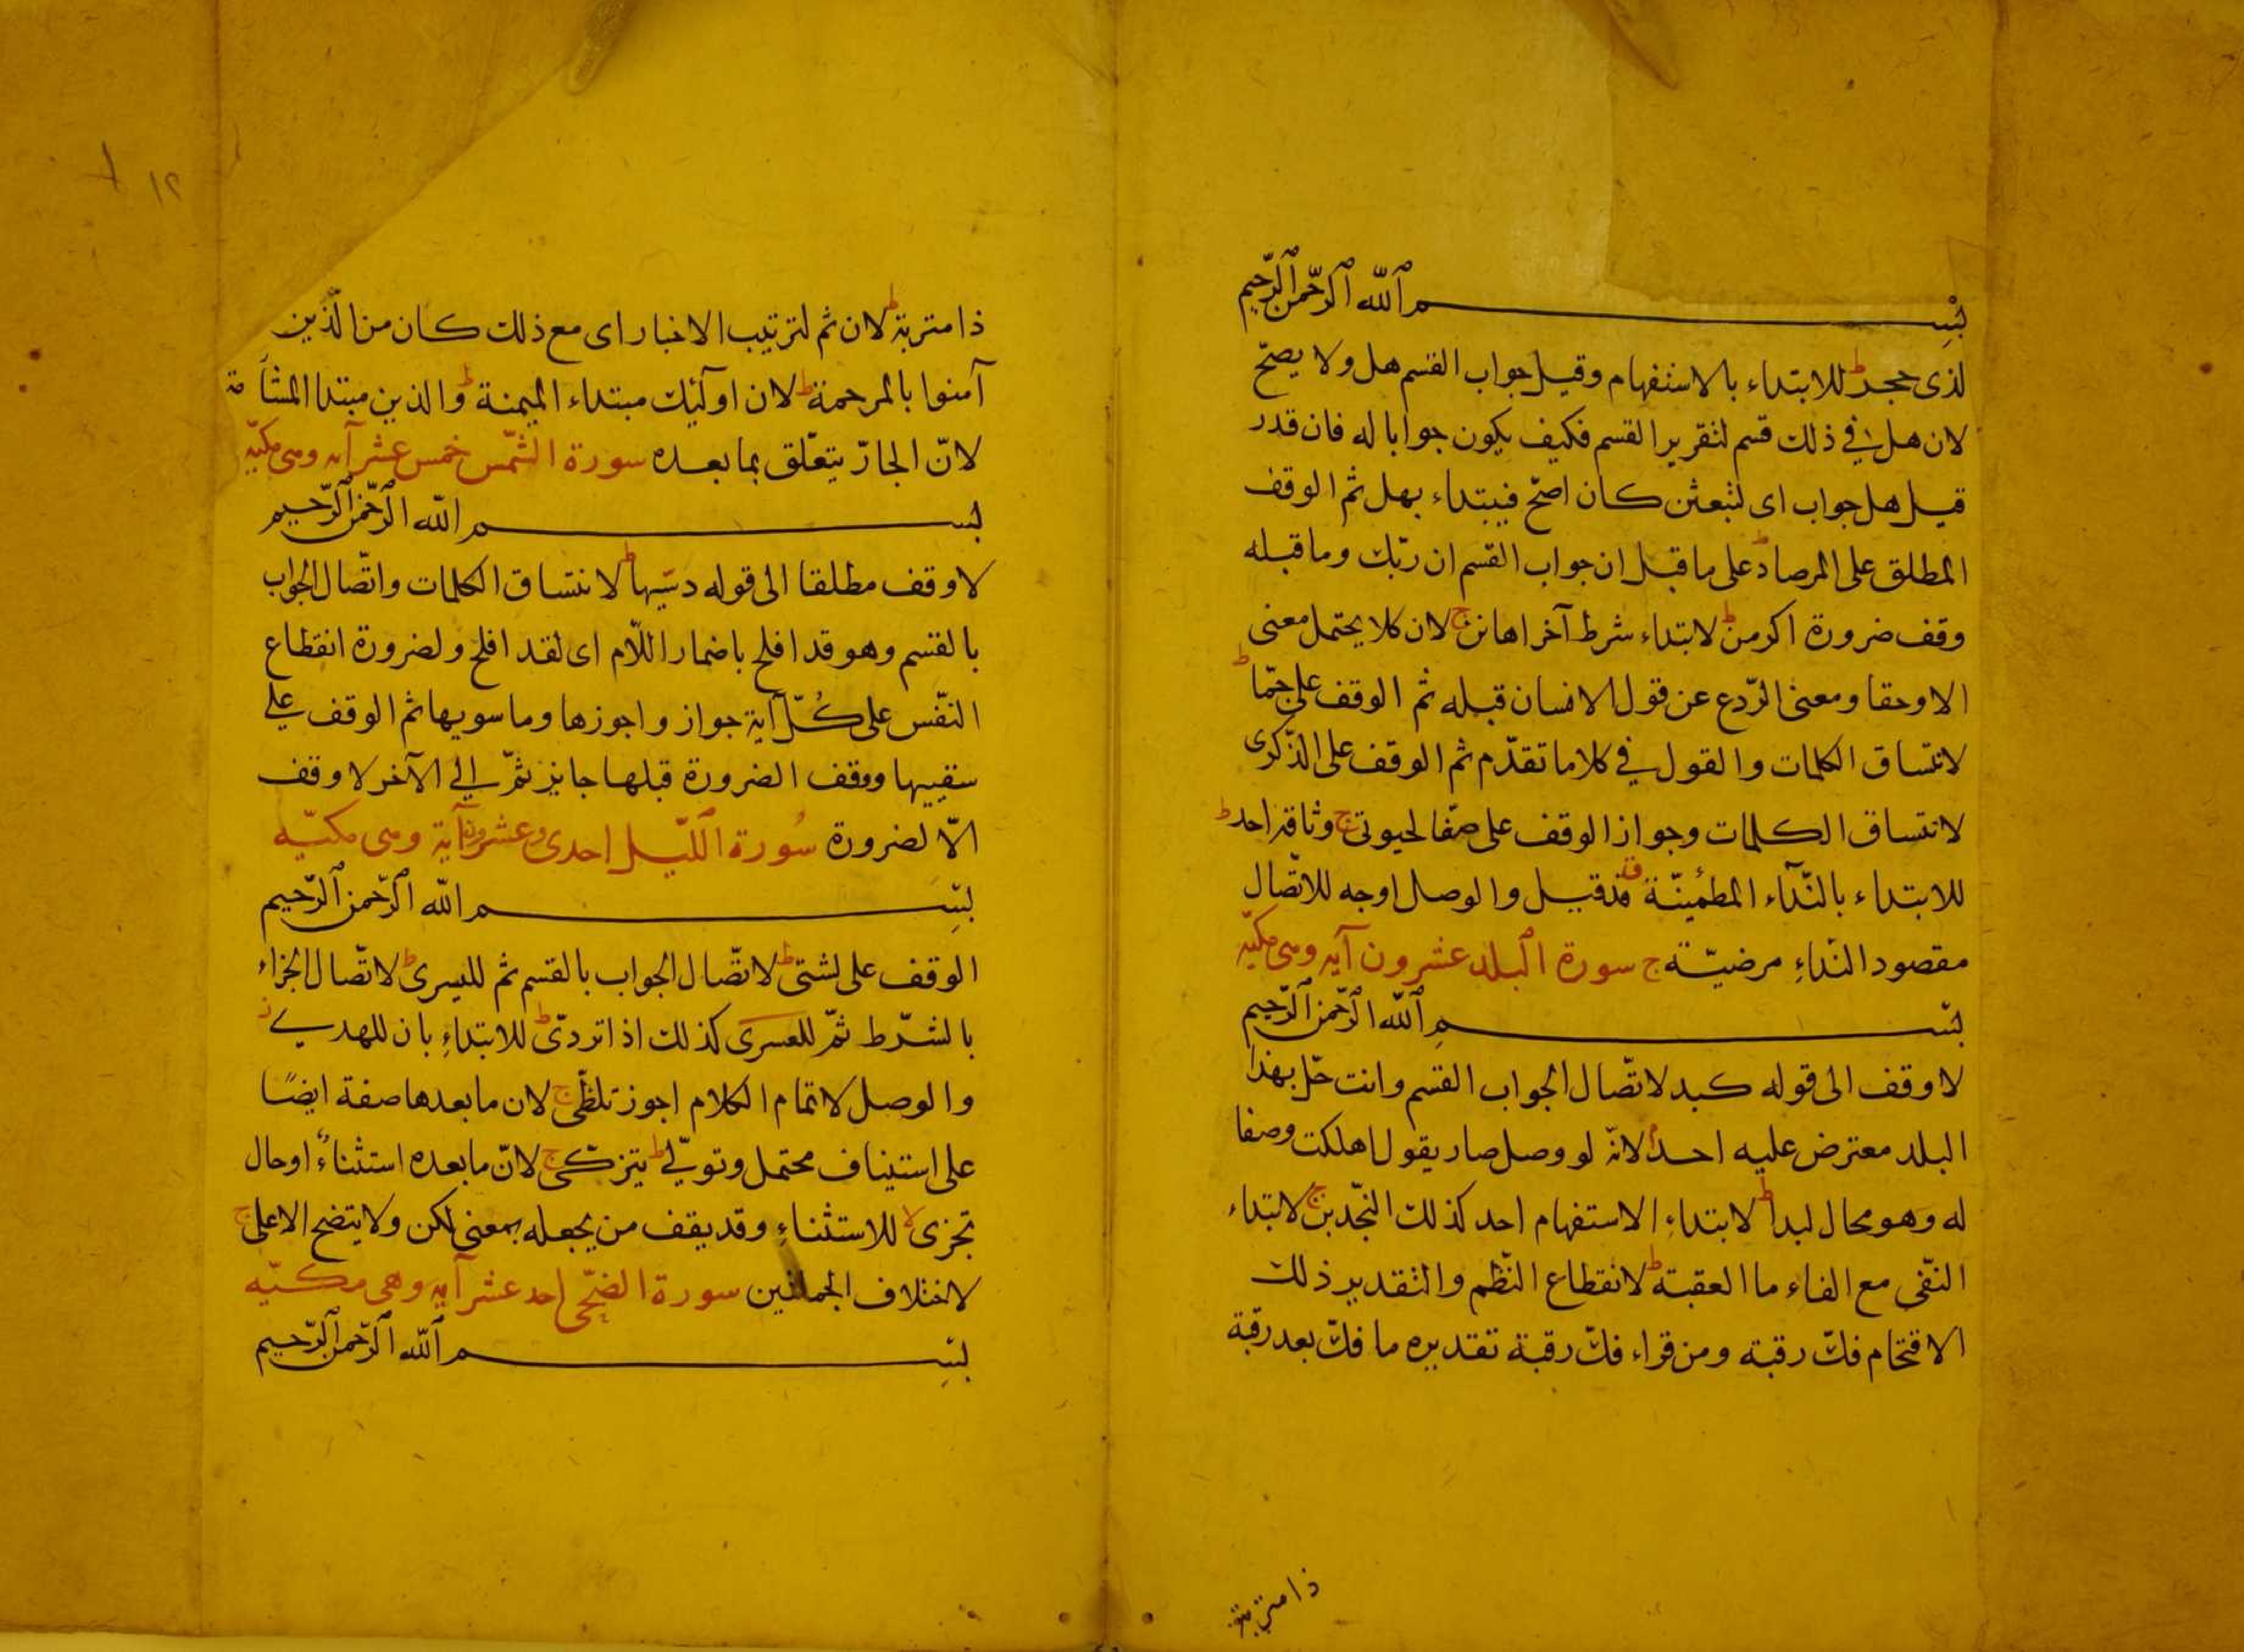 بسم الله الرحمن الرحيم
لذى حجر ط للابتداء بالاستفهام وقيل جواب القسم هل ولا يصحّ
لان هل فى ذلك قسم لتقرير القسم فكيف يكون جوابا له فان قدر
قيل هل جواب اى لتبعثن كان اصحّ فيبتداء بهل ثم الوقف
المطلق على المرصاد ط على ما قبل ان جواب القسم ان ربّك وما قبله
وقف ضرورة اكرمن ط لابتداء شرط آخر اهانن ج لان كلا يحتمل معنى
الا وحقا ومعنى الرّدع عن قول الانسان قبله ثم الوقف على جمّا ط
لاتساق الكلمات والقول فى كلا ما تقدّم ثم الوقف على الذّكرى
لاتساق الكلمات وجواز الوقف على صفّا لحيوتى ج وثاقه احد ط
للابتداء بالنّدآء المطمئنّة ق قذقيل والوصل اوجه للاتّصال
مقصود النداءِ مرضيّة ج سورة البلد عشرون آيه وهى مكيّه
بسم الله الرحمن الرحيم
لا وقف الى قوله كبد لاتّصال الجواب القسم وانت حلّ بهذا
البلد معترض عليه احد لانّه لو وصل صار يقول اهلكت وصفا
له وهو محال لبدا ط لابتداءِ الاستفهام احد كذلك النجّدين ج لابتداء
النّفى مع الفاء ما العقبة ط لانقطاع النّظم والتقدير ذلك
الاقتحام فكّ رقبة ومن قراء فكّ رقبة تقديره ما فكّ بعد رقبة
ذا متربة
ذا متربة ط لان ثم لترتيب الاخبار اى مع ذلك كان من الّذين
آمنوا بالمرحمة ط لان اولئك مبتداء الميمنة ط والذين مبتدا المشأمة
لانّ الجارّ يتعّلق بما بعده سورة الشّمس خمس عشر آيه وهى مكيّه
بسم الله الرحمن الرحيم
لا وقف مطلقا الى قوله دسّيها ط لانتساق الكلمات واتّصال الجواب
بالقسم وهو قد افلح باضمار اللّام اى لقد افلح ولضرورة انقطاع
النّفس على كُلّ آية جواز واجوزها وما سويها ثم الوقف على
سقييها ووقف الضرورة قبلها جايز ثمّ الى الآخر لا وقف
الّا لضرورة سُورة اللّيل احدى وعشرون آية وهى مكيّه
بسم الله الرحمن الرحيم
الوقف على لشتى ط لاتّصال الجواب بالقسم ثم لليسرى ط لاتّصال الجزاء
بالشّرط ثمّ للعسرى كذلك اذا تردّى ط للابتداءِ بان للهدى ز
والوصل لاتمام الكلام اجوز تلظّى ج لان ما بعدها صفة ايضًا
على استيناف محتمل وتولّى ط يتزكّى ج لانّ ما بعده استثناءٌ او حال
تجزى لا للاستثناءِ وقد يقف من يجعله بمعنى لكن ولا يتضح الاعلى ج
لاختلاف الجملتين سورة الضّحى احد عشر آيه وهى مكيّه
بسم الله الرحمن الرحيم
١٢